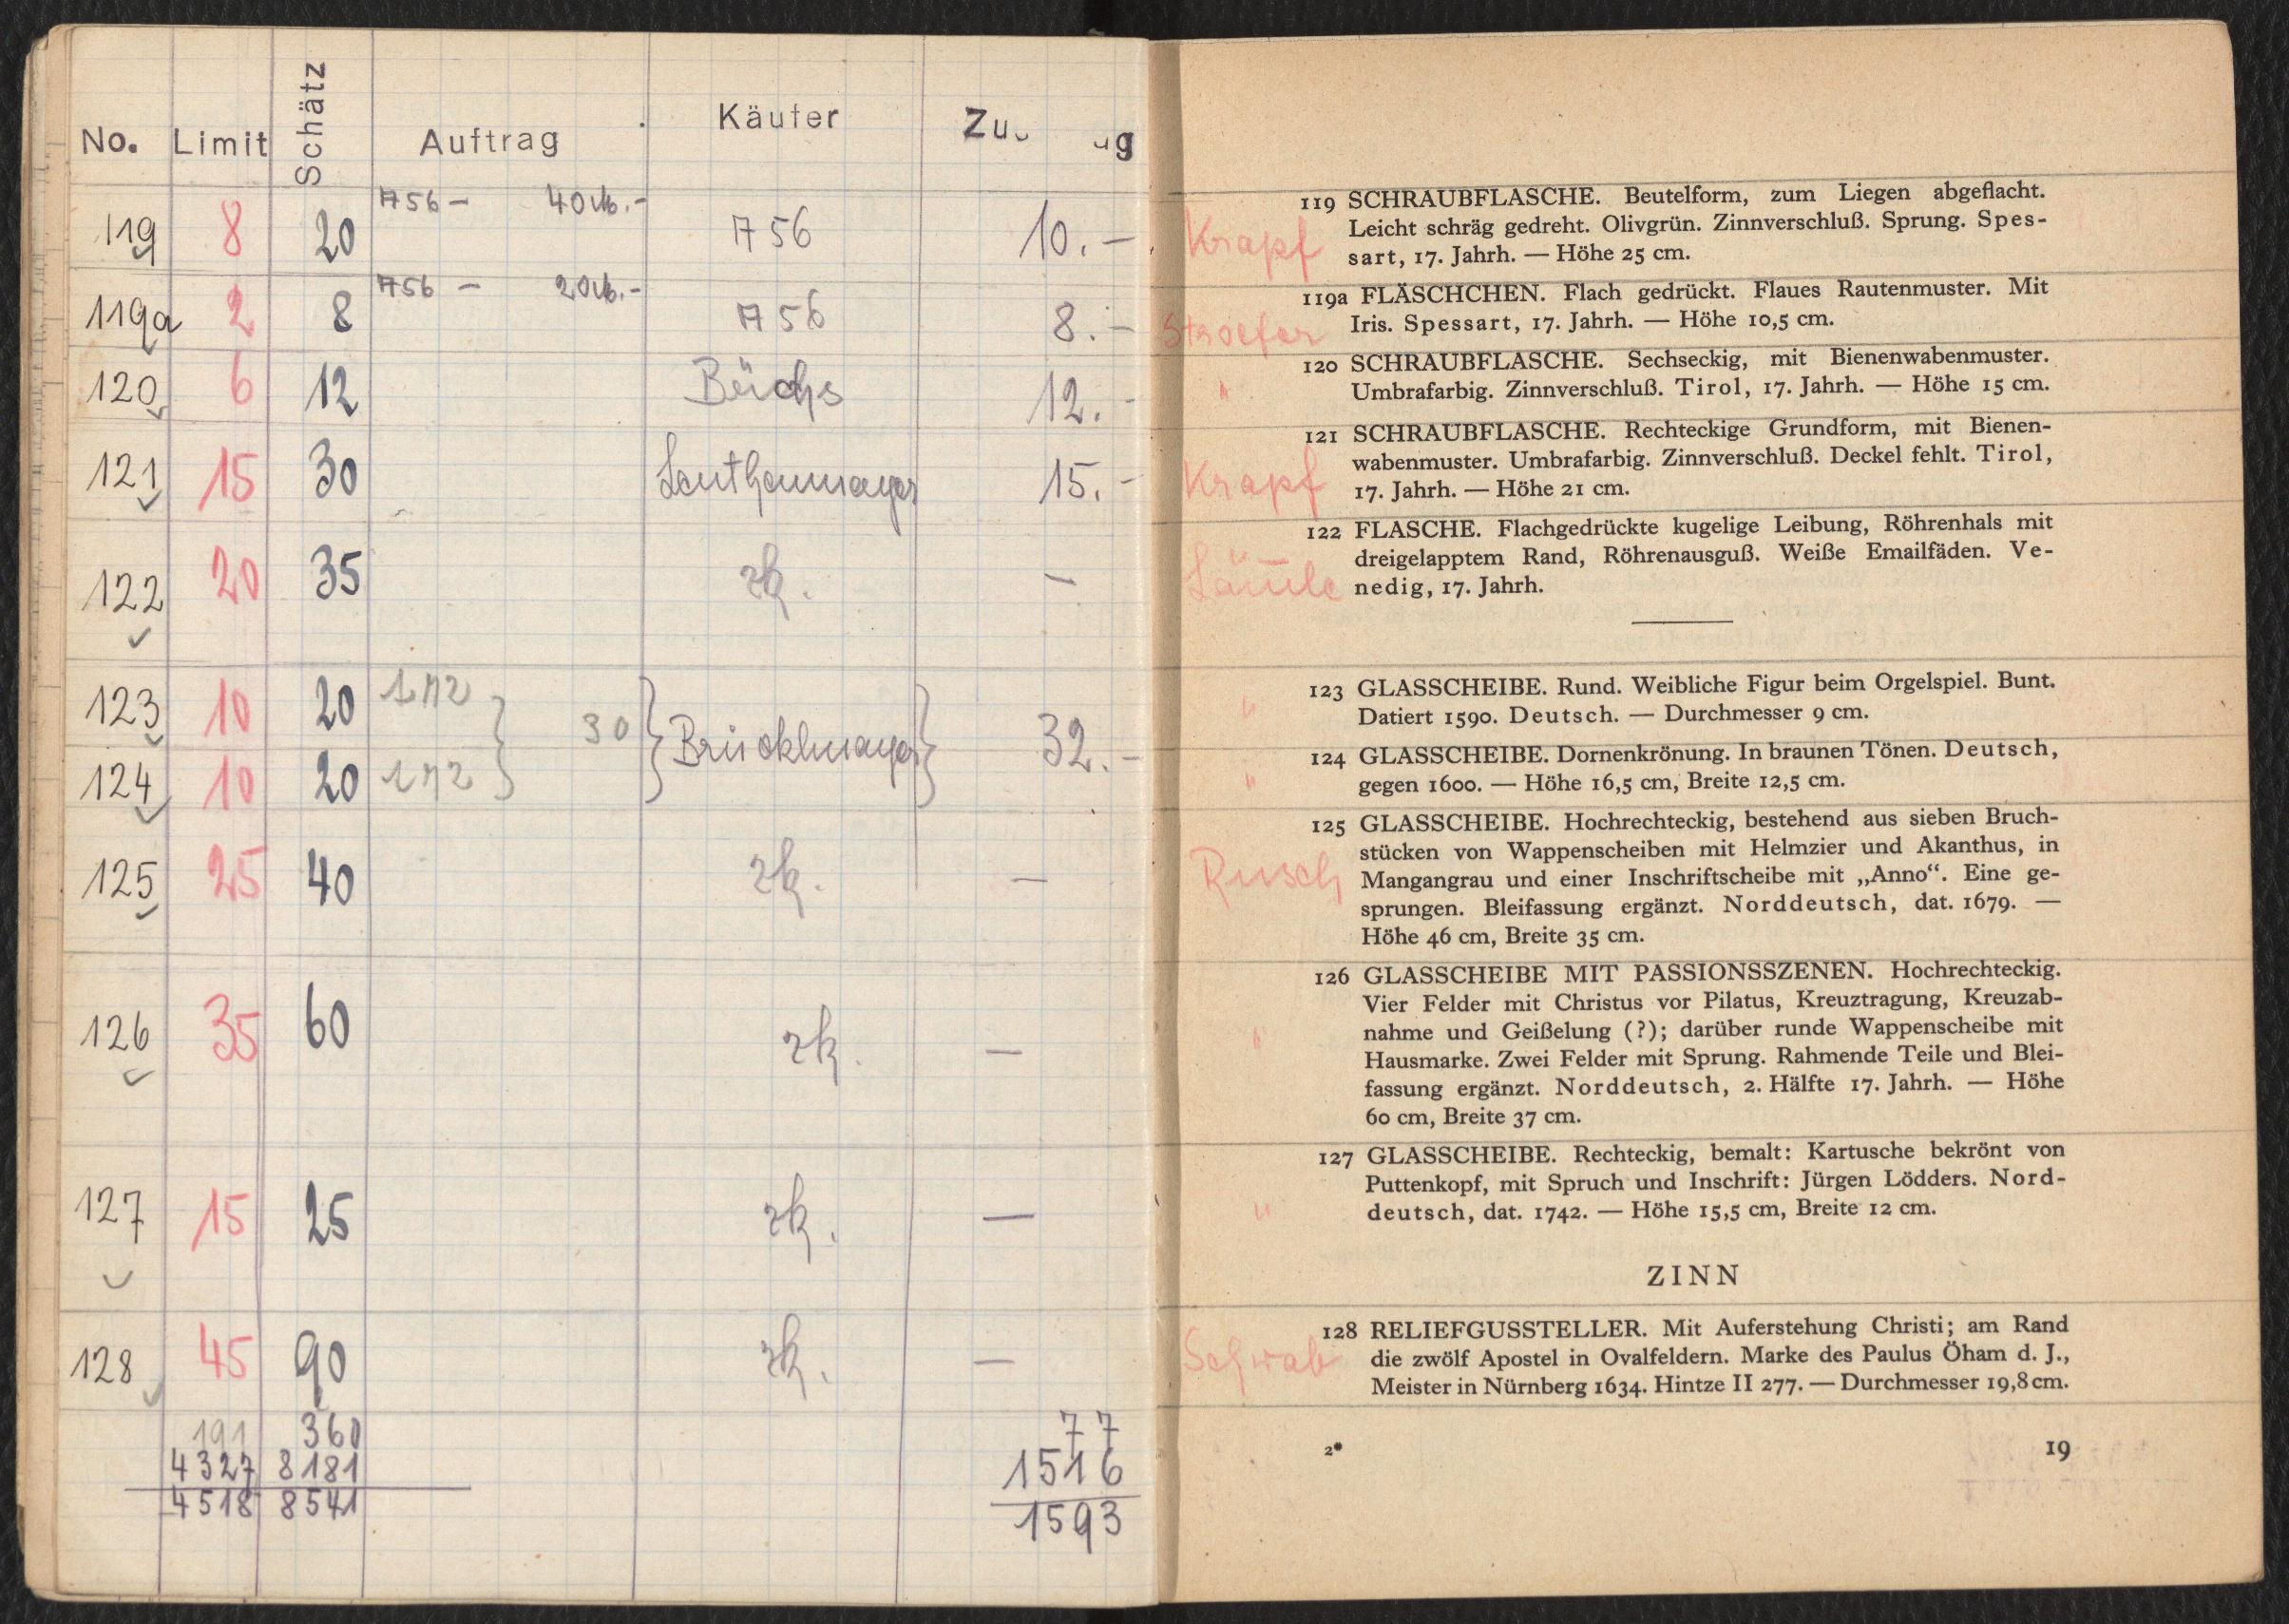 No. Limit Schätz Auftrag Käufer Zu g
756 — 40 M.-
119 8 20 756 10.—
756 — 20 M.-
119a 2 8 756 8.—
120 6 12 12.-
121 15 30 15.-
122 20 35 zk. —
123 10 20 172
30 Brücklmayer 32.-
124 10 20 172
125 25 40 zk. —
126 35 60 zk. —
127 15 25 zk. —
128 45 90 zk. —
191 360 77
4327 8181 1516
4518 8541 1593
119 SCHRAUBFLASCHE. Beutelform, zum Liegen abgeflacht.
Leicht schräg gedreht. Olivgrün. Zinnverschluß. Sprung. Spes-
Krapf sart, 17. Jahrh. — Höhe 25 cm.
119a FLÄSCHCHEN. Flach gedrückt. Flaues Rautenmuster. Mit
Stroefer Iris. Spessart, 17. Jahrh. — Höhe 10,5 cm.
120 SCHRAUBFLASCHE. Sechseckig, mit Bienenwabenmuster.
" Umbrafarbig. Zinnverschluß. Tirol, 17. Jahrh. — Höhe 15 cm.
121 SCHRAUBFLASCHE. Rechteckige Grundform, mit Bienen-
wabenmuster. Umbrafarbig. Zinnverschluß. Deckel fehlt. Tirol,
Krapf 17. Jahrh. — Höhe 21 cm.
122 FLASCHE. Flachgedrückte kugelige Leibung, Röhrenhals mit
dreigelapptem Rand, Röhrenausguß. Weiße Emailfäden. Ve-
Läuile nedig, 17. Jahrh.
123 GLASSCHEIBE. Rund. Weibliche Figur beim Orgelspiel. Bunt.
" Datiert 1590. Deutsch. — Durchmesser 9 cm.
124 GLASSCHEIBE. Dornenkrönung. In braunen Tönen. Deutsch,
" gegen 1600. — Höhe 16,5 cm, Breite 12,5 cm.
125 GLASSCHEIBE. Hochrechteckig, bestehend aus sieben Bruch-
stücken von Wappenscheiben mit Helmzier und Akanthus, in
Rusch Mangangrau und einer Inschriftscheibe mit „Anno“. Eine ge-
sprungen. Bleifassung ergänzt. Norddeutsch, dat. 1679. —
Höhe 46 cm, Breite 35 cm.
126 GLASSCHEIBE MIT PASSIONSSZENEN. Hochrechteckig.
Vier Felder mit Christus vor Pilatus, Kreuztragung, Kreuzab-
" nahme und Geißelung (?); darüber runde Wappenscheibe mit
Hausmarke. Zwei Felder mit Sprung. Rahmende Teile und Blei-
fassung ergänzt. Norddeutsch, 2. Hälfte 17. Jahrh. — Höhe
60 cm, Breite 37 cm.
127 GLASSCHEIBE. Rechteckig, bemalt: Kartusche bekrönt von
Puttenkopf, mit Spruch und Inschrift: Jürgen Lödders. Nord-
" deutsch, dat. 1742. — Höhe 15,5 cm, Breite 12 cm.
ZINN
128 RELIEFGUSSTELLER. Mit Auferstehung Christi; am Rand
Schwab die zwölf Apostel in Ovalfeldern. Marke des Paulus Öham d. J.,
Meister in Nürnberg 1634. Hintze II 277. — Durchmesser 19,8 cm.
2* 19